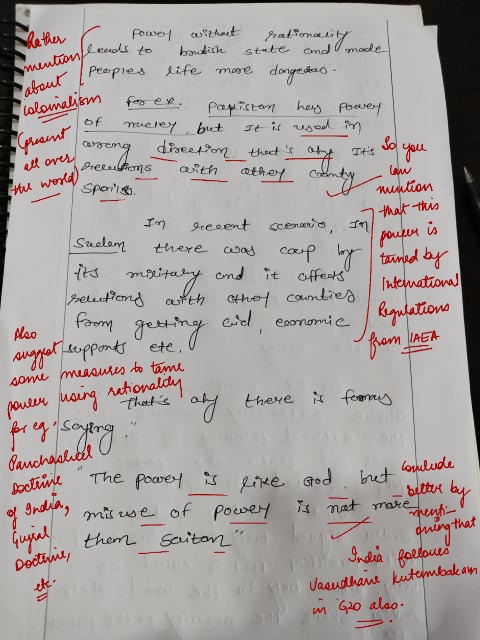 Power without rationality
leads to brutish state and made
peoples life more dangeras.
for ex. Pakistan has power
of nucley, but It is used in
wrong direction that's why It's
relations with othey county
Spoils.
In recent scenario, In
Sudan there was coup by
its military and it affects
relutions with othey counties
from getting aid, economic
supports etc.
That's why there is famus
saying "
"The power is like God, but
misuse of power is not more
then Saitan"
Rather
mention
about
colonialism
(present
all over
the world)
So you
can
mention
that this
power is
tamed by
International
Regulations
from IAEA
Also
suggest
some measures to tame
power using rationality
for eg.
Panchasheel
Doctrine
of India,
Gujral
Doctrine,
etc.
Conclude
better by
menti-
oning that
India follows
Vasudhaiva kutumbakam
in G20 also.